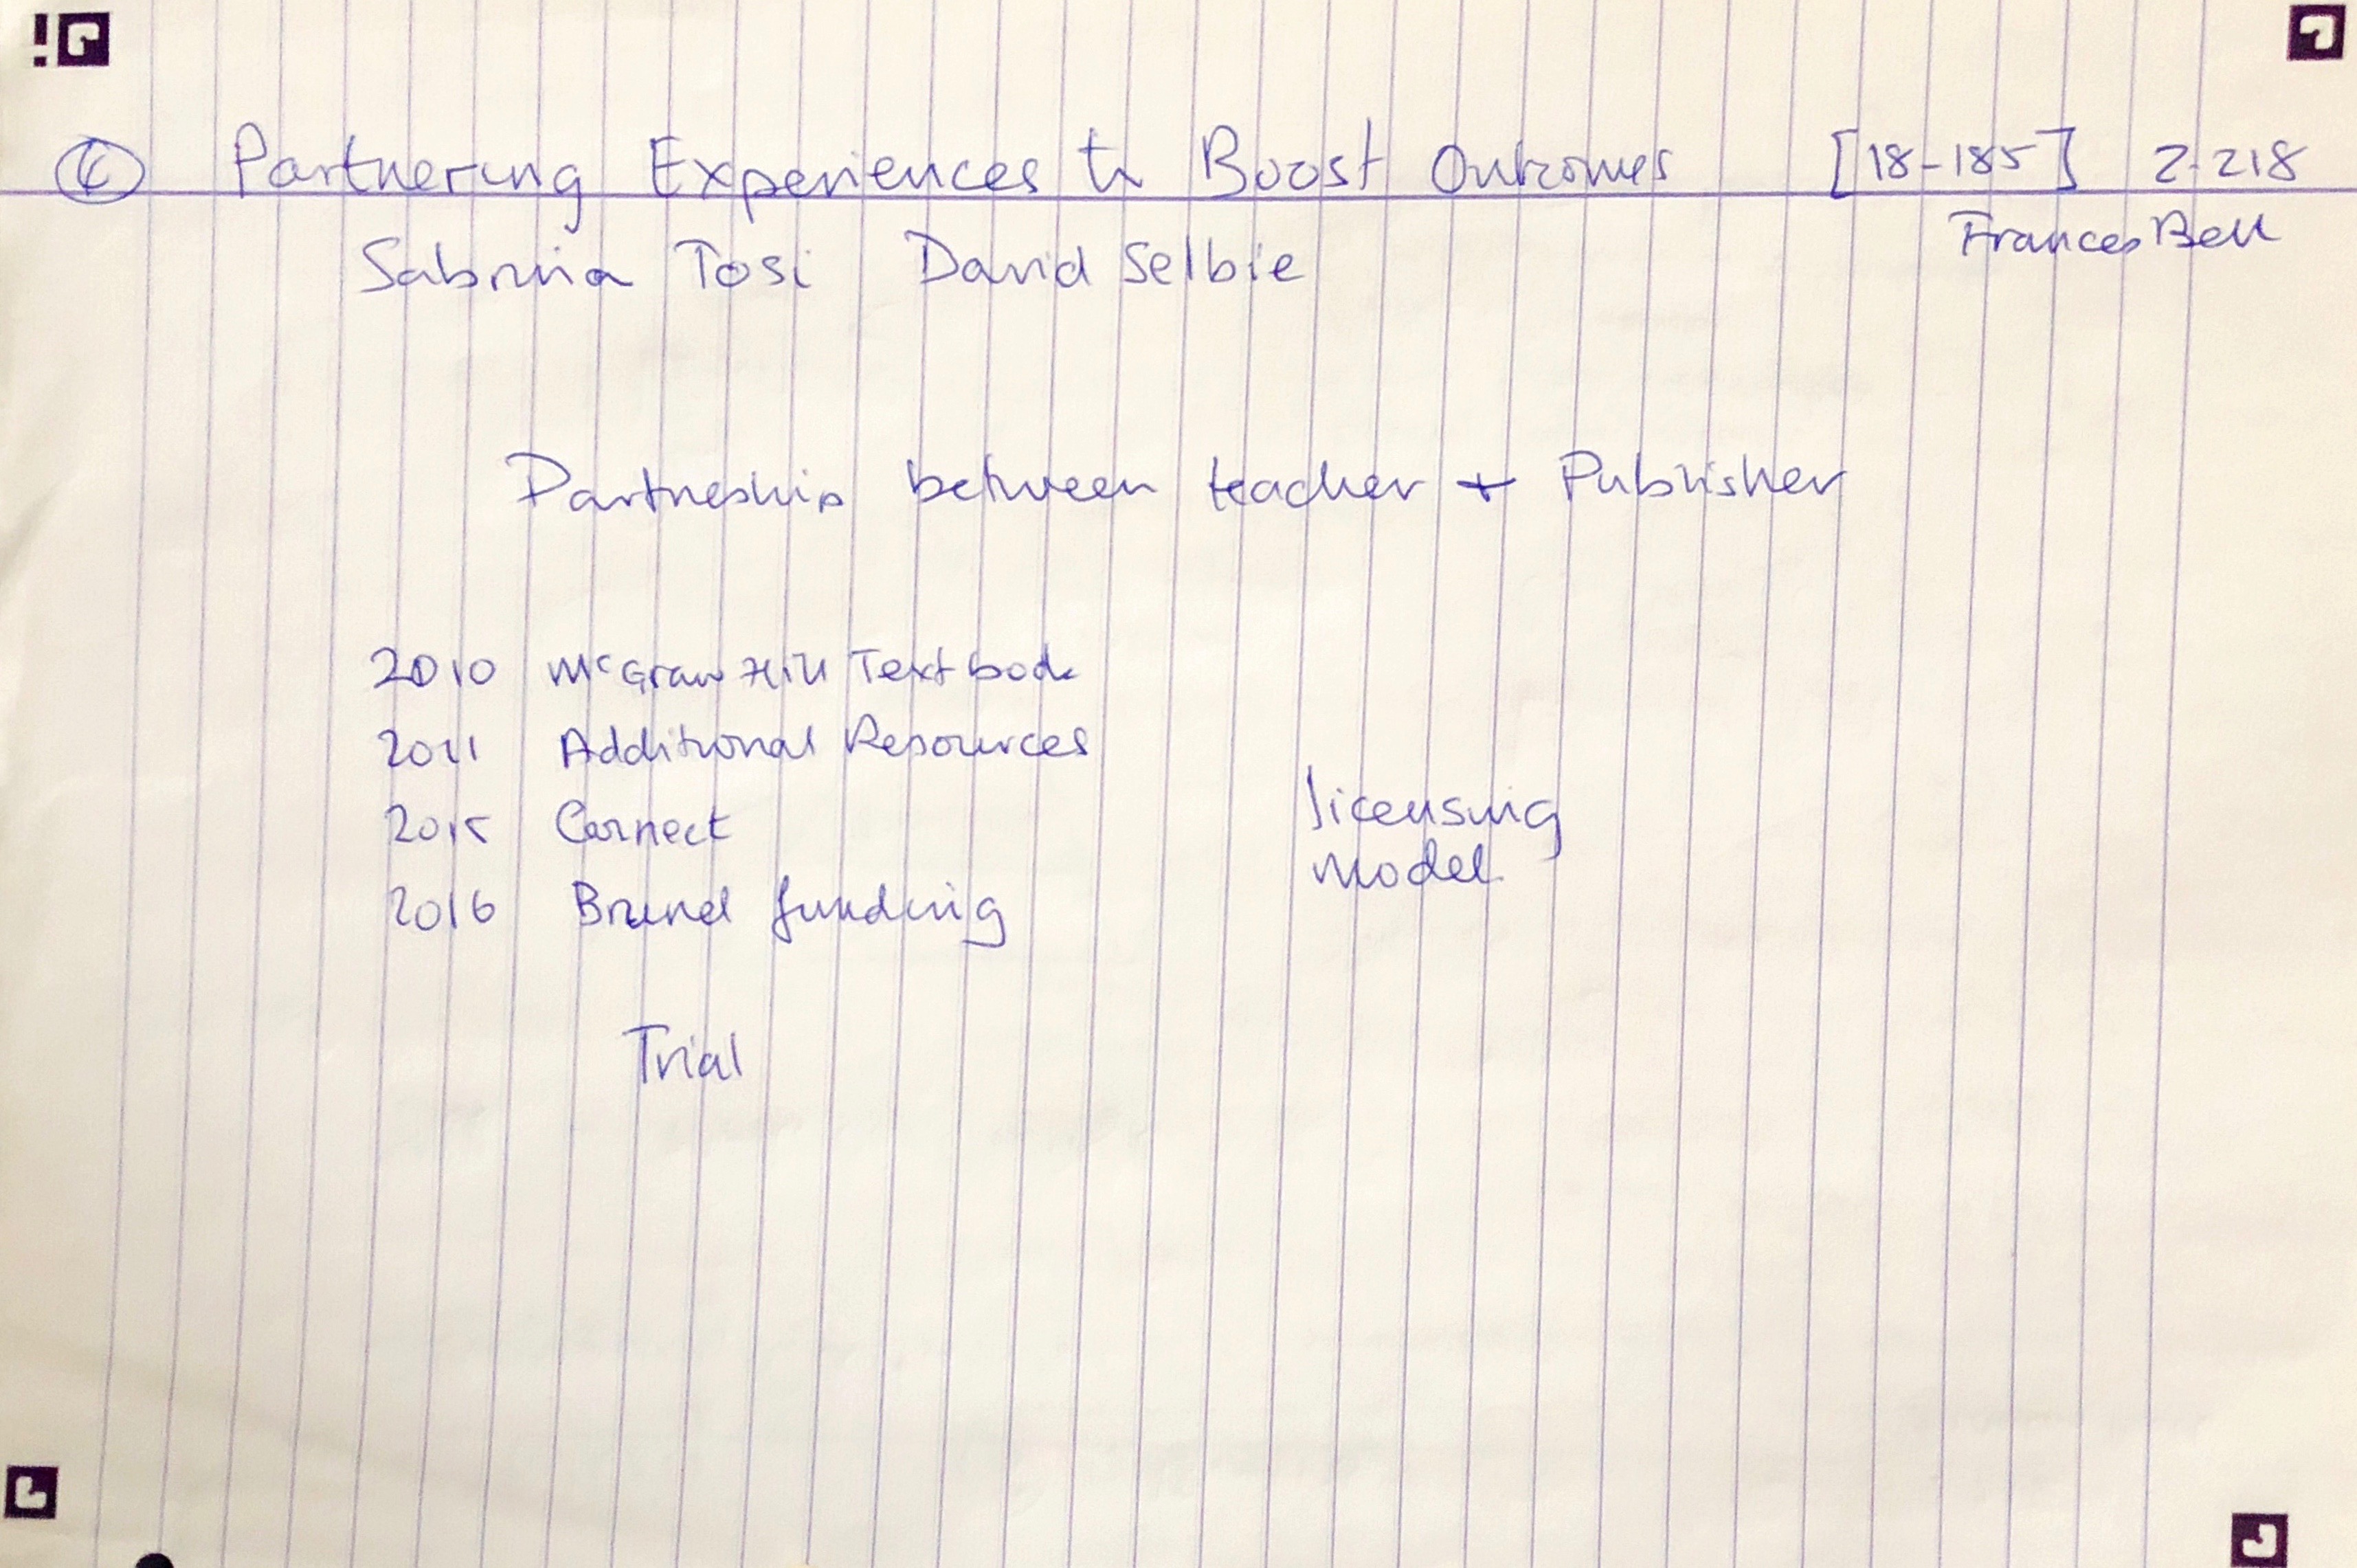 Partnering Experiences to Boost Outcomes [18-185] 2.218
Sabrina Tosi David Selbie Frances Bell
Partneship between teacher + Publisher
2010 McGraw Hill Textbook
2011 Additional Resources
2015 Connect
licensing
model
2016 funding
Trial